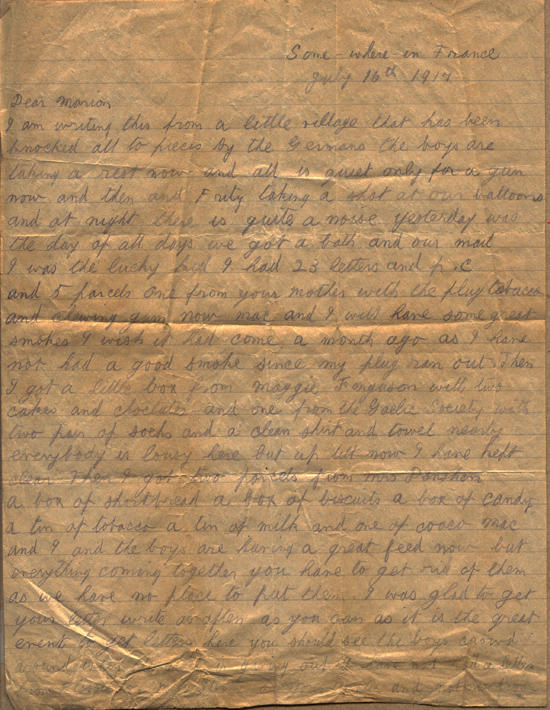 Some-where-in France
July 16th 1917
Dear Marion
I am writing this from a little village that has been
knocked all to pieces by the Germans the boys are
taking a rest now and all is quiet only for a gun
now and then and Fritz taking a shot at our balloons
and at night there is quite a noise yesterday was
the day of all days we got a bath and our mail
I was the lucky kid I had 23 letters and p.c
and 5 parcels one from your mother with the plug tobacco
and chewing gum now mac and I will have some great
smokes I wish it had come a month ago as I have
not had a good smoke since my plug ran out Then
I got a little box from Maggie Ferguson with two
cakes and and one from the Gaelic Society with
two pair of socks and a clean shirt and towel nearly
everybody is lousy here but up till now I have kept
clear Then I got two parcels from mrs
a box of shortbread a box of biscuits a box of candy
a tin of tobacco a tin of milk and one of cocoa mac
and I and the boys are having a great feed now but
everything coming together you have to get rid of them
as we have no place to put them. I was glad to get
your letter write as often as you can as it is the great
event to get letters here you should see the boys crowd
around out I have not had a letter
from and